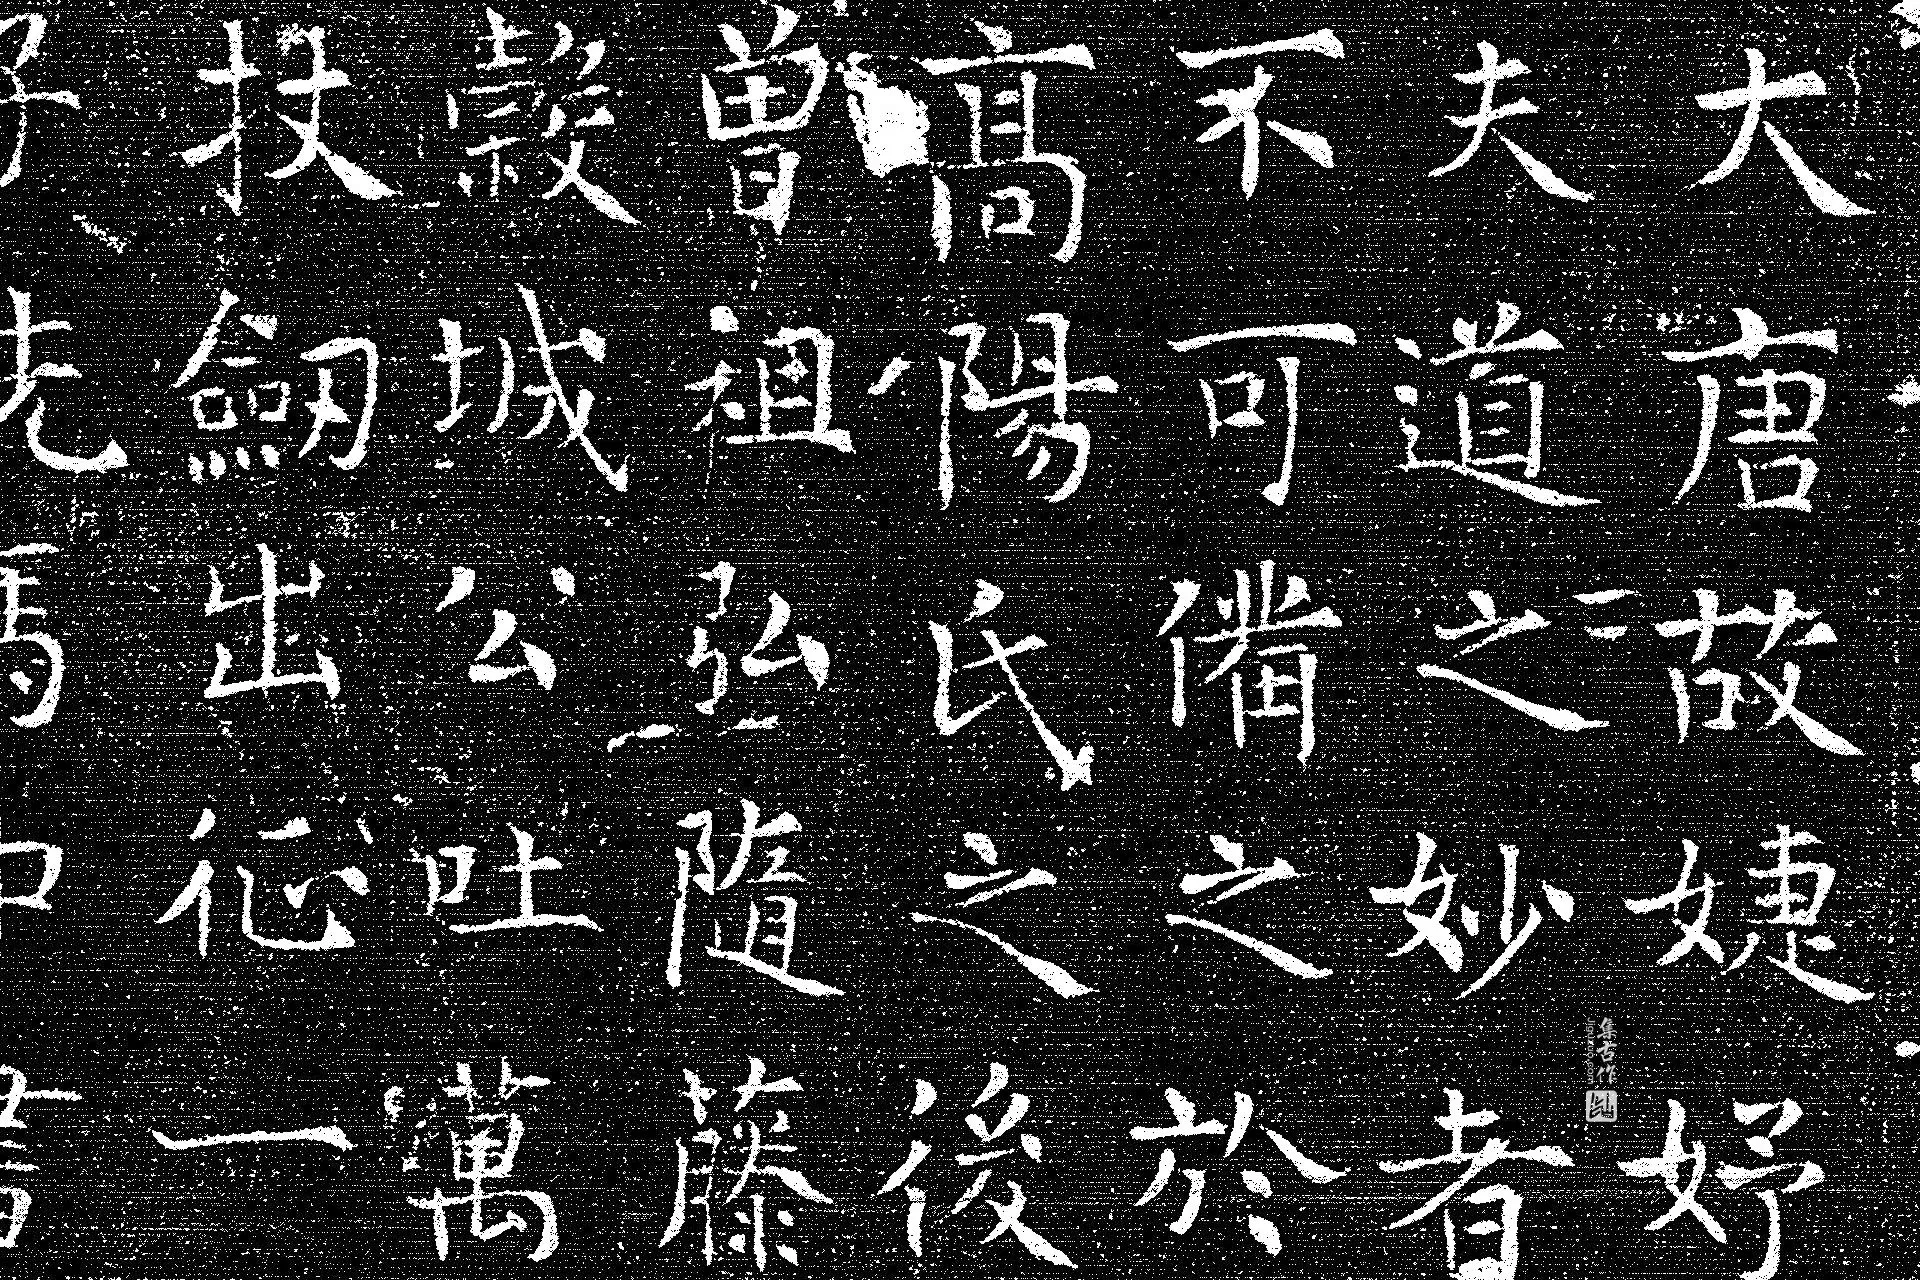 大唐故婕妤
夫道之妙者
不可備之於
高陽氏之後
曾祖弘隨藤
穀城公吐萬
扙劒出征一
集古作